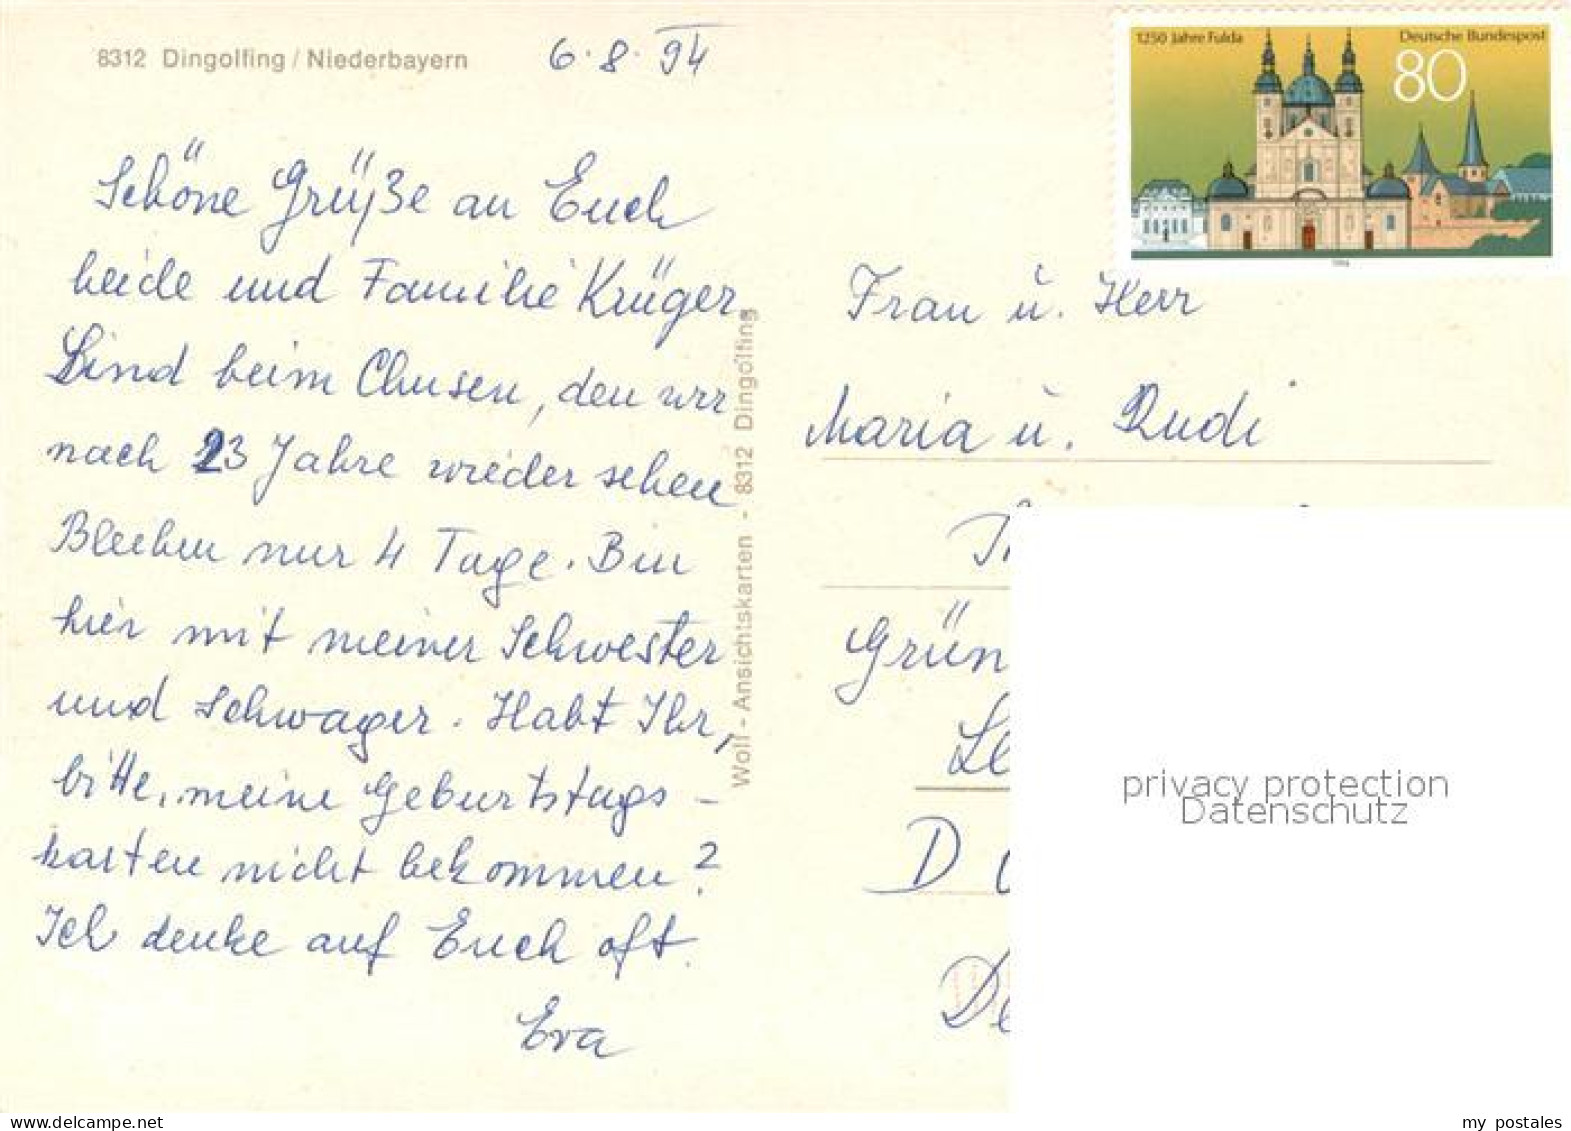 8312 Dingolfing / Niederbayern
6.8.94
Schöne Grüße an Euch
beide und Familie Krüger.
Sind beim Clusen, den wir
nach 23 Jahre wieder sehen
Bleiben nur 4 Tage. Bin
hier mit meiner Schwester
und Schwager. Habt Ihr,
bitte, meine Geburtstags-
karten nicht bekommen?
Ich denke auf Euch oft.
Eva
Wolf - Ansichtskarten - 8312 Dingolfing
1250 Jahre Fulda
Deutsche Bundespost
80
Frau u. Herr
Maria u. Rudi
Grün
D
privacy protection
Datenschutz
my_postales